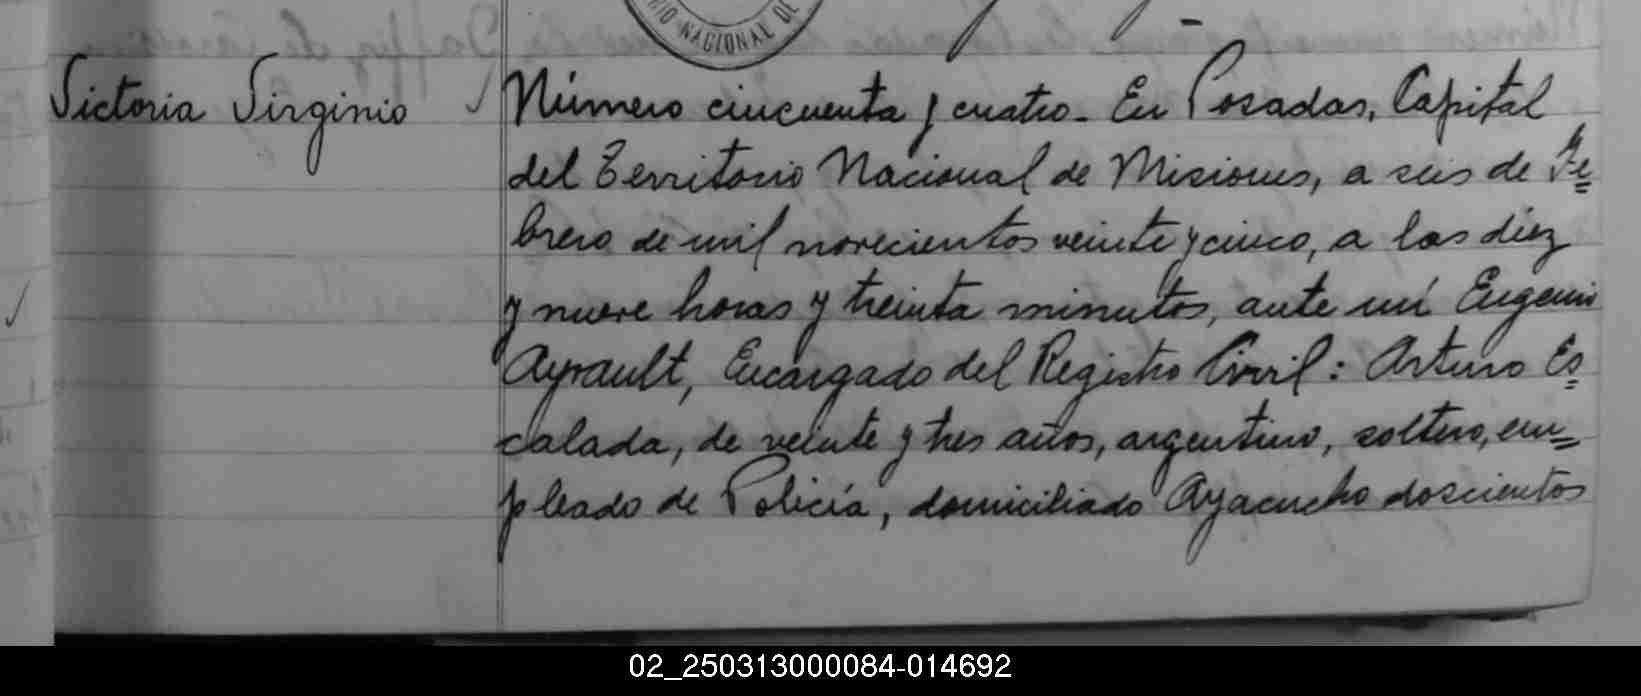 RIO NACIONAL DE
Victoria Virginio
Número cincuenta y cuatro. En Posadas, Capital
del Territorio Nacional de Misiones, a seis de Fe=
brero de mil novecientos veinte y cinco, a las diez
y nueve horas y treinta minutos, ante mí Eugenio
Ayrault, Encargado del Registro Civil: Arturo Es=
calada, de veinte y tres años, argentino, soltero, em=
pleado de Policía, domiciliado Ayacucho doscientos
02_250313000084-014692